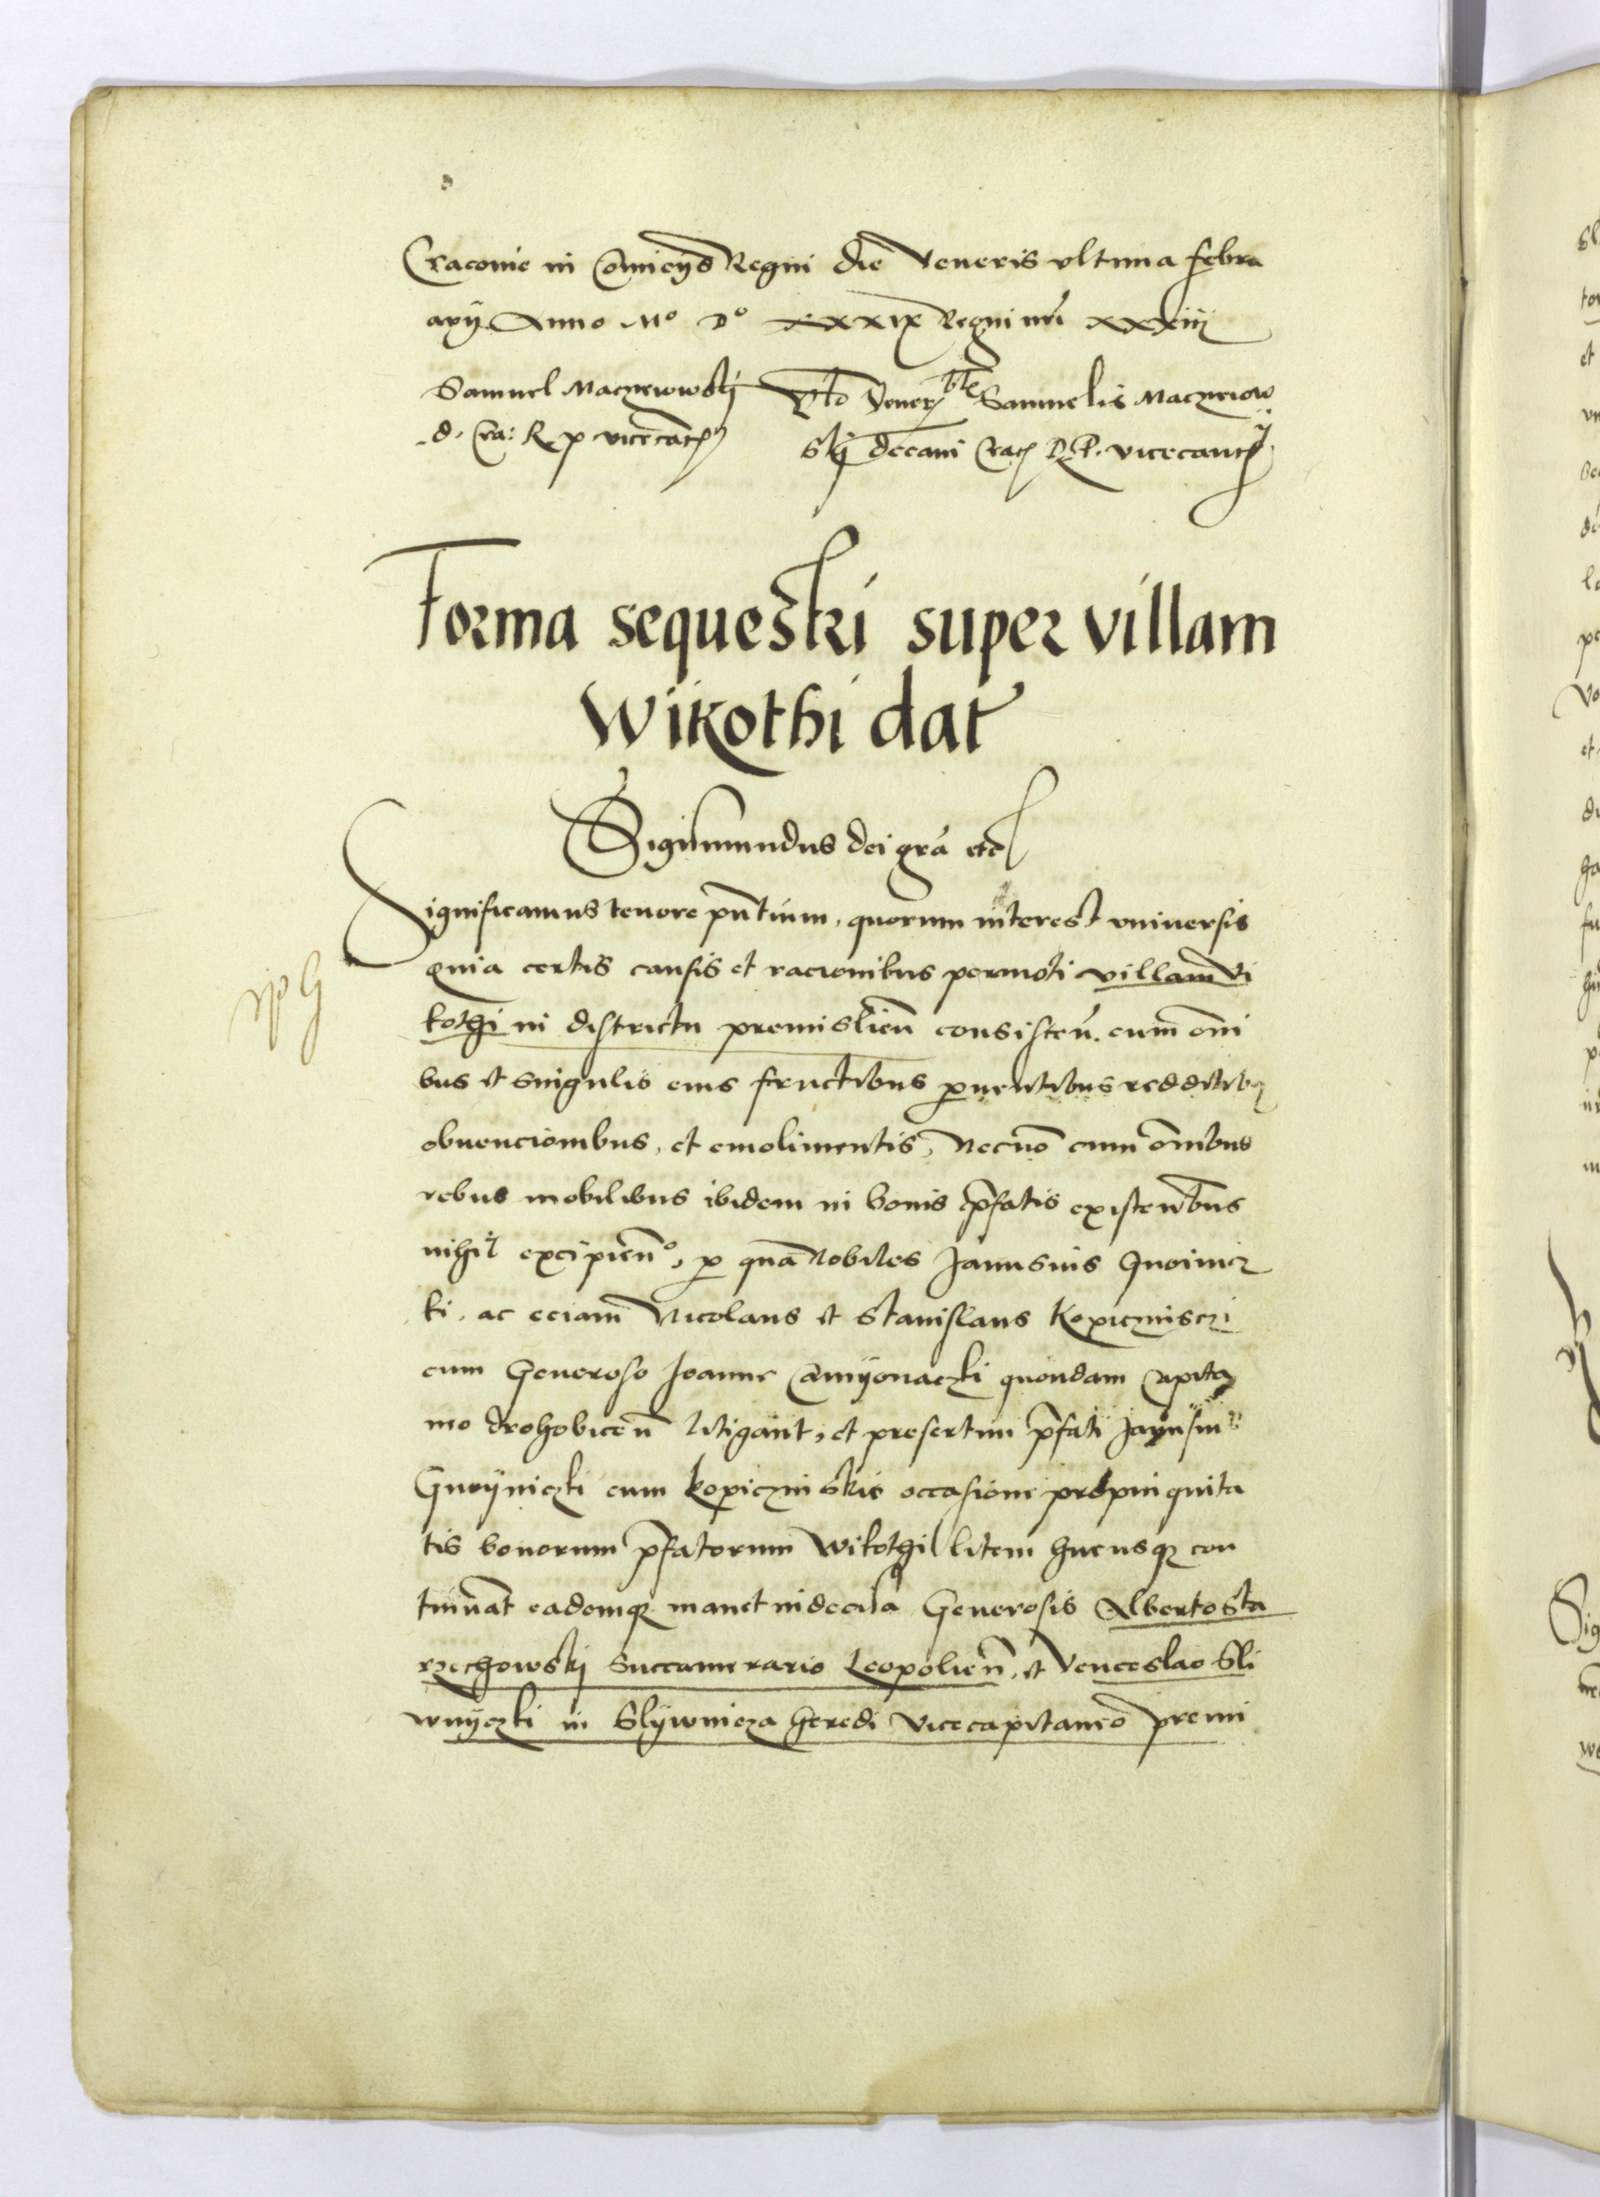 Cracovie in Comicijs Regni die Veneris ultima febru
arij Anno Mo Do xxxix Regni nri xxxiij
Samuel Macyeiowskj Rtio Vener. Samuelis Macyeiow
d. Cra: R p vicecanc. skj decani Crac. R. P. vicecanc.
Forma sequestri super villam
Wikothi dat
Sigismundus dei gra etc
Significamus tenore pntium, quorum interest universis
quia certis causis et racionibus permoti villam Vi
kothi in districtu premislien consisten. cum omi
bus et singulis eius fructibus proventibus redditibus
obvencionibus, et emolimentis, Necno cum omibus
rebus mobilibus ibidem in bonis pfatis existentibus
nihil excipieno, p qua Nobiles Janusius Gnoinicz
ki. ac eciam Nicolaus et Stanislaus Kopicznisczi
cum Generoso Joanne Camijonaczki quondam Capita
neo drohobicen litigant, et presertim pfati Janusius
Gnoyniczki cum kopiczniskis occasione propinquita
tis bonorum pfatorum Wikothi litem hucusq con
tinuat eademq manet indecisa Generosis Alberto Sta
rzechowskj Succamerario Leopolien, et Venceslao Sli
wnyczki in Slywnicza heredi Vicecapitaneo premi